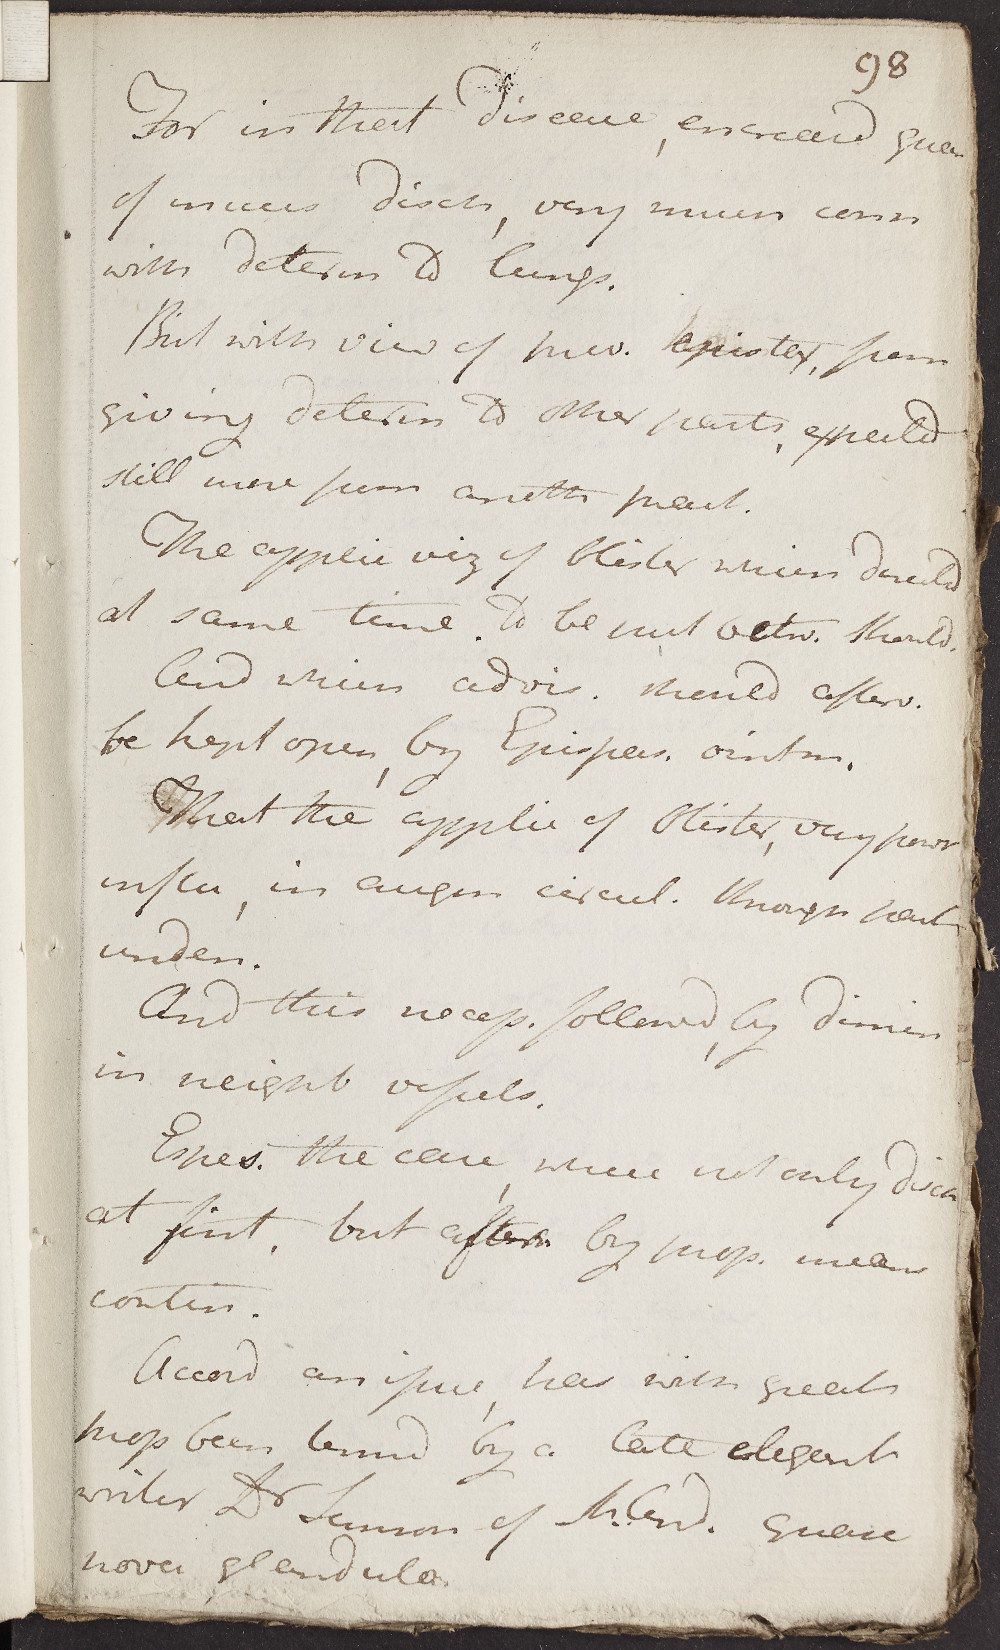 98
For in that disease, encreasd quan
of mucus disch, very much conn
with determ to lungs.
But with view of prev. hepistax, from
giving determ to other parts, expected
still more from anoth part.
The applic viz of blister which directed
at same time. to be put betw. should.
And which advis. should afterw.
be kept open, by Epispas. ointm.
That the applic of blister, very powr
influ, in augm circul. through part
under.
And this necess. followd, by dimin
in neighb vessels.
Espec. the case, where not only disch
at first, but afterw by prop. means
contin.
Accord an issue, has with great
prop been termd by a late elegant
writer Dr Simson of St. And. quasi
nova glandula.